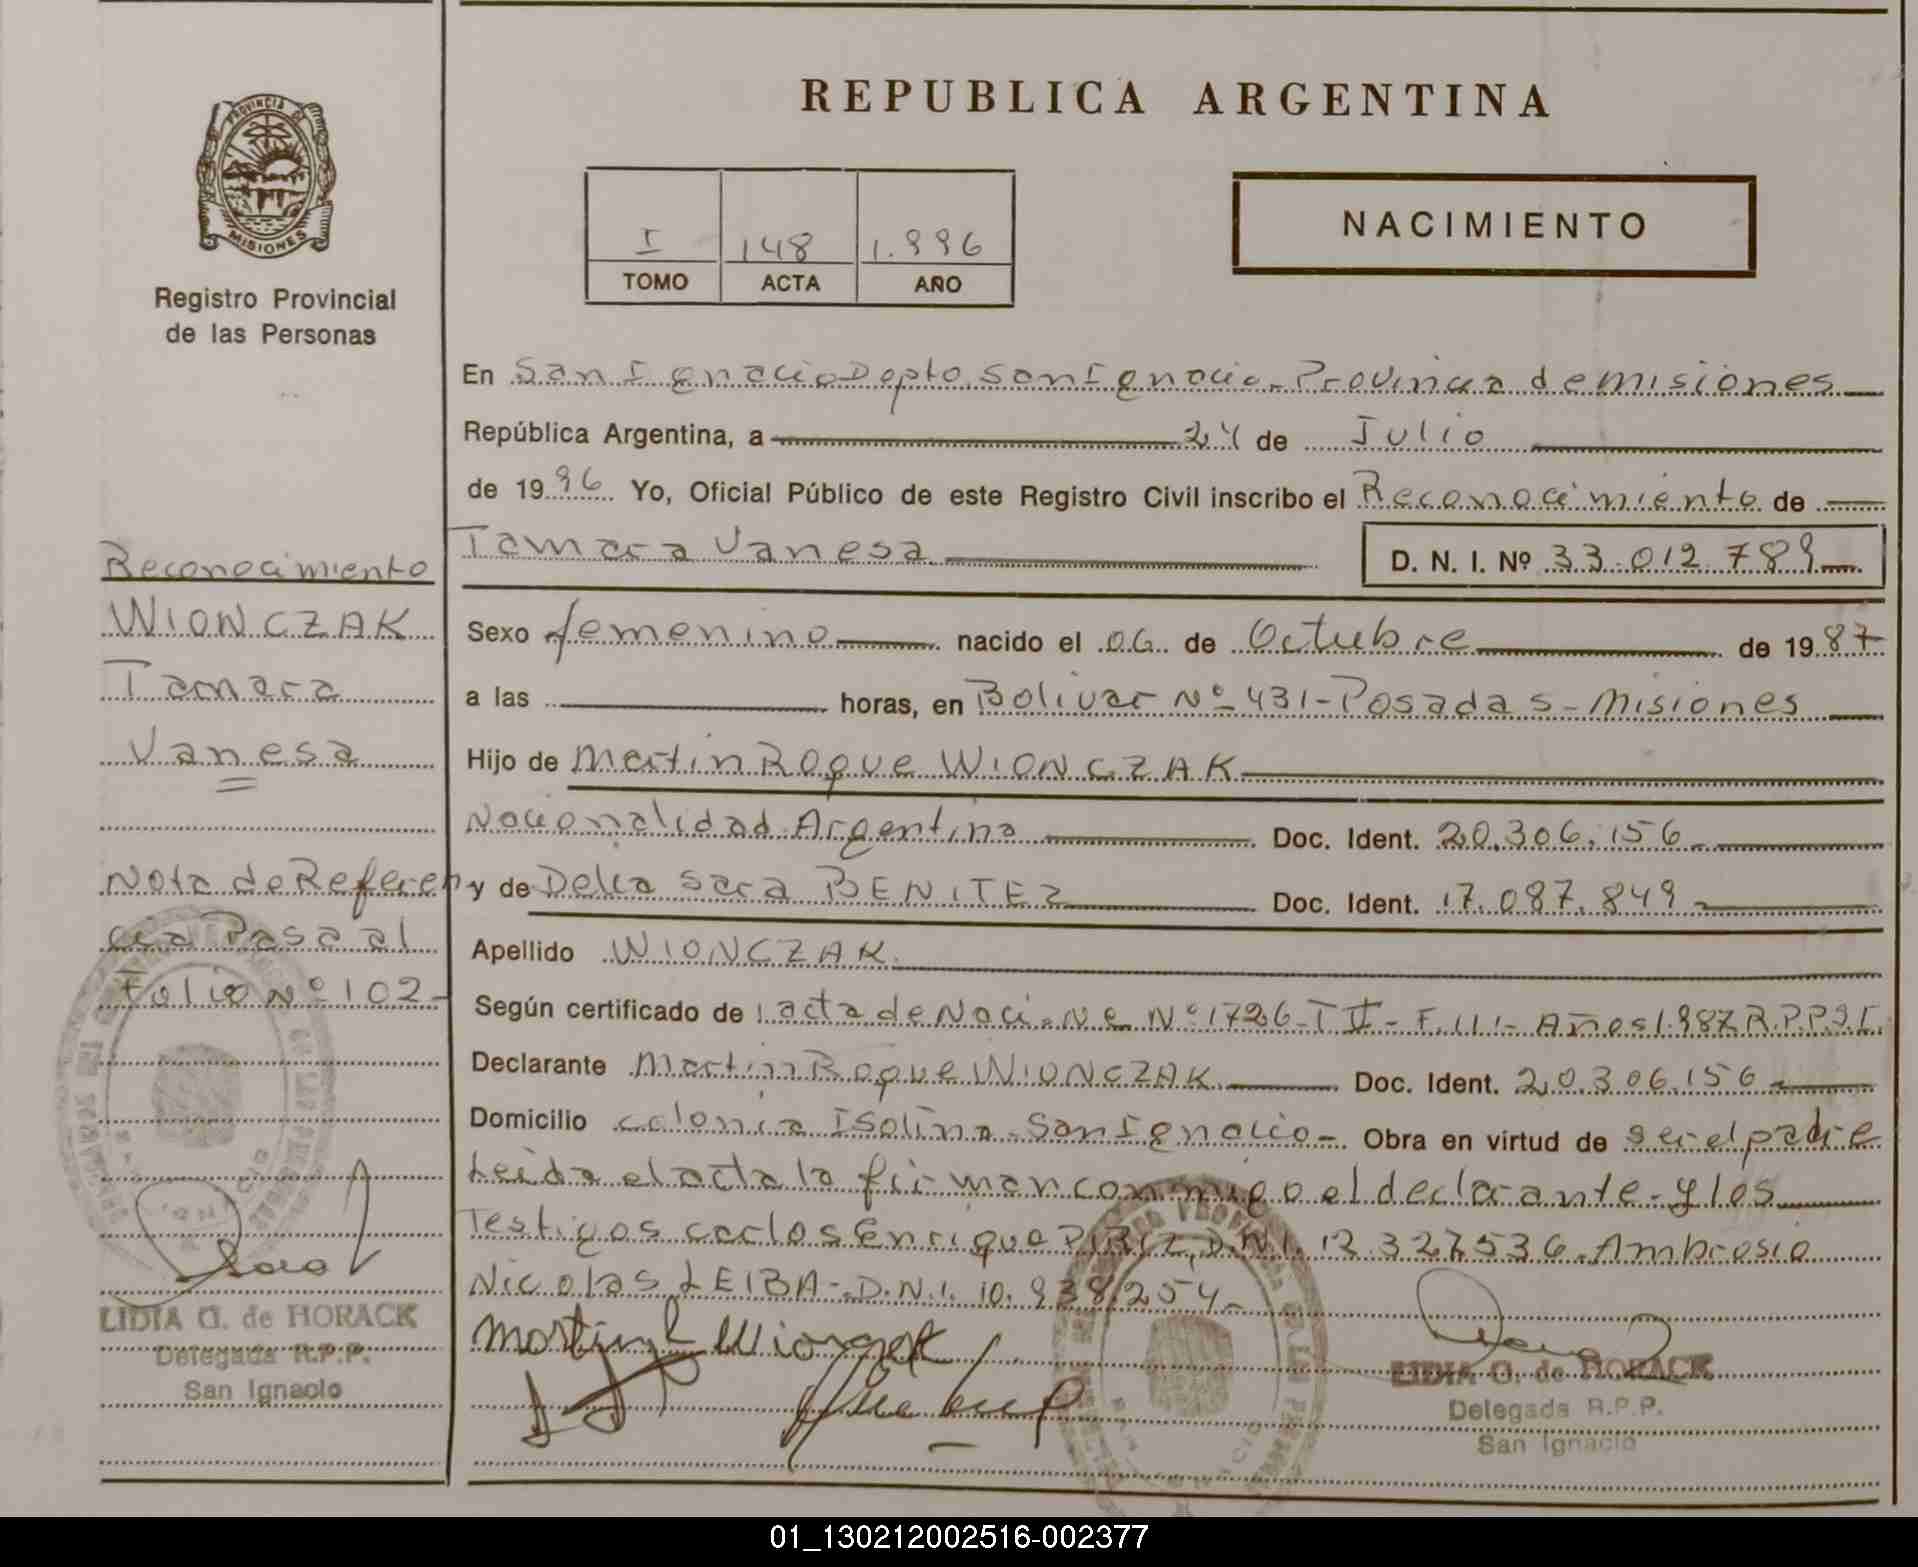 REPUBLICA ARGENTINA
PROVINCIA DE
MISIONES
Registro Provincial
de las Personas
I 148 1.996
TOMO ACTA AÑO
NACIMIENTO
En San Ignacio Dpto San Ignacio - Provincia de misiones
República Argentina, a 24 de Julio
de 1996 Yo, Oficial Público de este Registro Civil inscribo el Reconocimiento de
Tamara Vanesa D. N. I. Nº 33.012.789
Sexo femenino nacido el 06 de Octubre de 1987
a las horas, en Bolivar Nº 431 - Posadas - Misiones
Hijo de Martin Roque WIONCZAK
Nacionalidad Argentina Doc. Ident. 20.306.156
y de Delia Sara BENITEZ Doc. Ident. 17.087.849
Apellido WIONCZAK
Según certificado de acta de Naci. Nº 1726 - T II - F. 111 - Años 1.987 R.P.P.
Declarante Martin Roque WIONCZAK Doc. Ident. 20.306.156
Domicilio colonia Isolina - San Ignacio - Obra en virtud de ser el padre
Leida el acta la firman conmigo el declarante - y los
Testigos carlos Enrique PIRIZ, D.N.I. 12.327.536 - Ambrosio
Nicolas LEIBA - D.N.I. 10.938.254 -
LIDIA G. de HORACK
Delegada R.P.P.
San Ignacio
Reconocimiento
WIONCZAK
Tamara
Vanesa
Nota de Referen
cia Pasa al
Folio Nº 102 -
LIDIA G. de HORACK
Delegada R.P.P.
San Ignacio
01_130212002516-002377